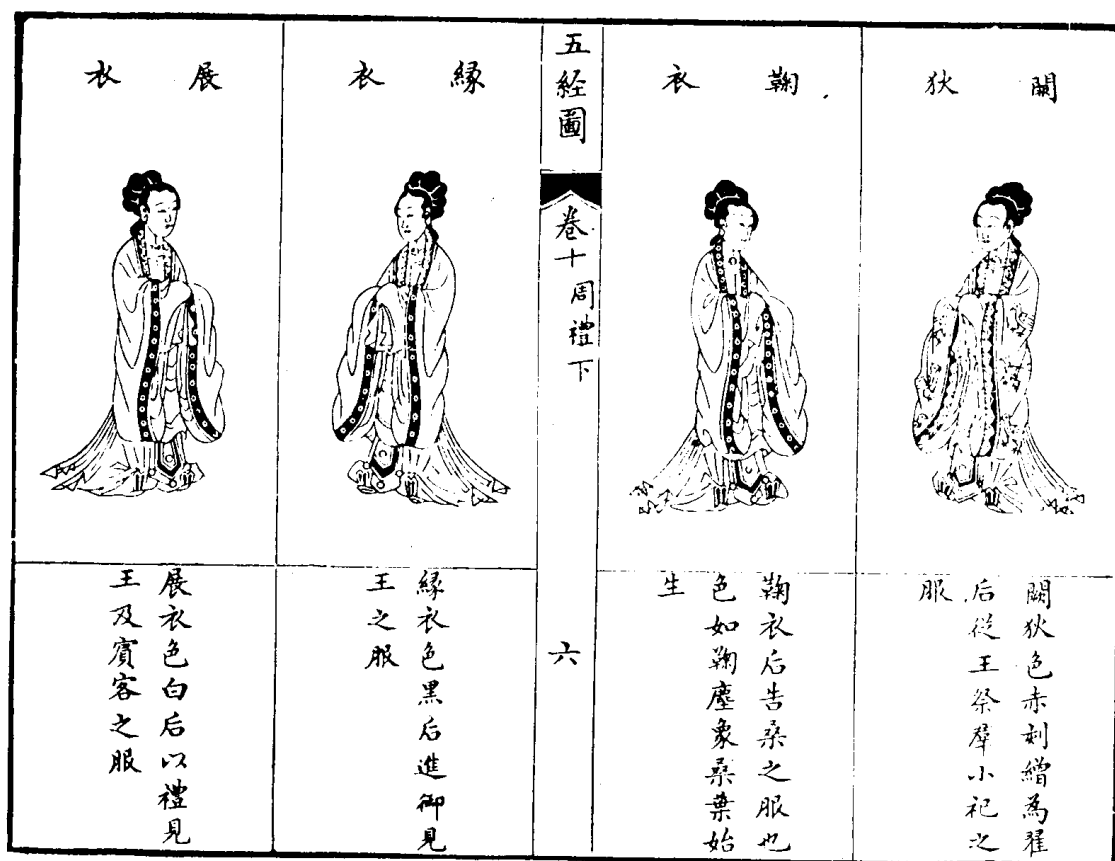 闕狄
闕狄色赤刻繒為翟
后從王祭羣小祀之
服
鞠衣
鞠衣后告桑之服也
色如鞠塵象桑葉始
生
五経圖
卷十周禮下
六
緣衣
緣衣色黑后進御見
王之服
展衣
展衣色白后以禮見
王及賓客之服